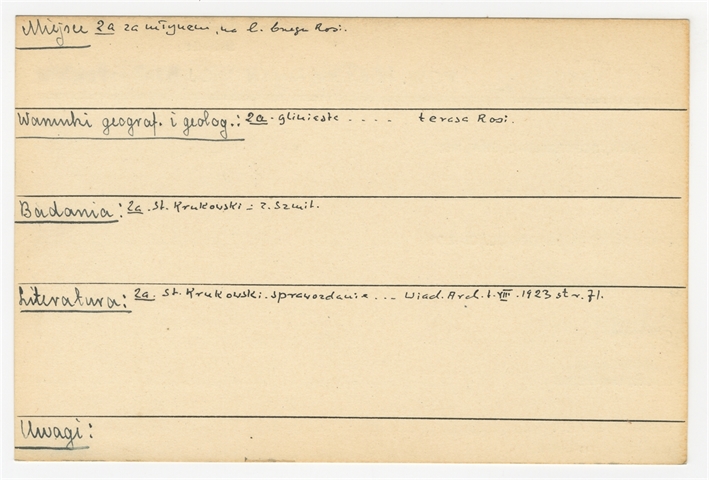 Miejsce 2a za młynem, na l. brzegu Rosi.
Warunki geograf. i geolog.: 2a. gliniaste .... terasa Rosi.
Badania: 2a. St. Krukowski - z. Szmit.
Literatura: 2a. St. Krukowski. sprawozdanie ... Wiad. Arch. t. VIII. 1923 str. 71.
Uwagi: